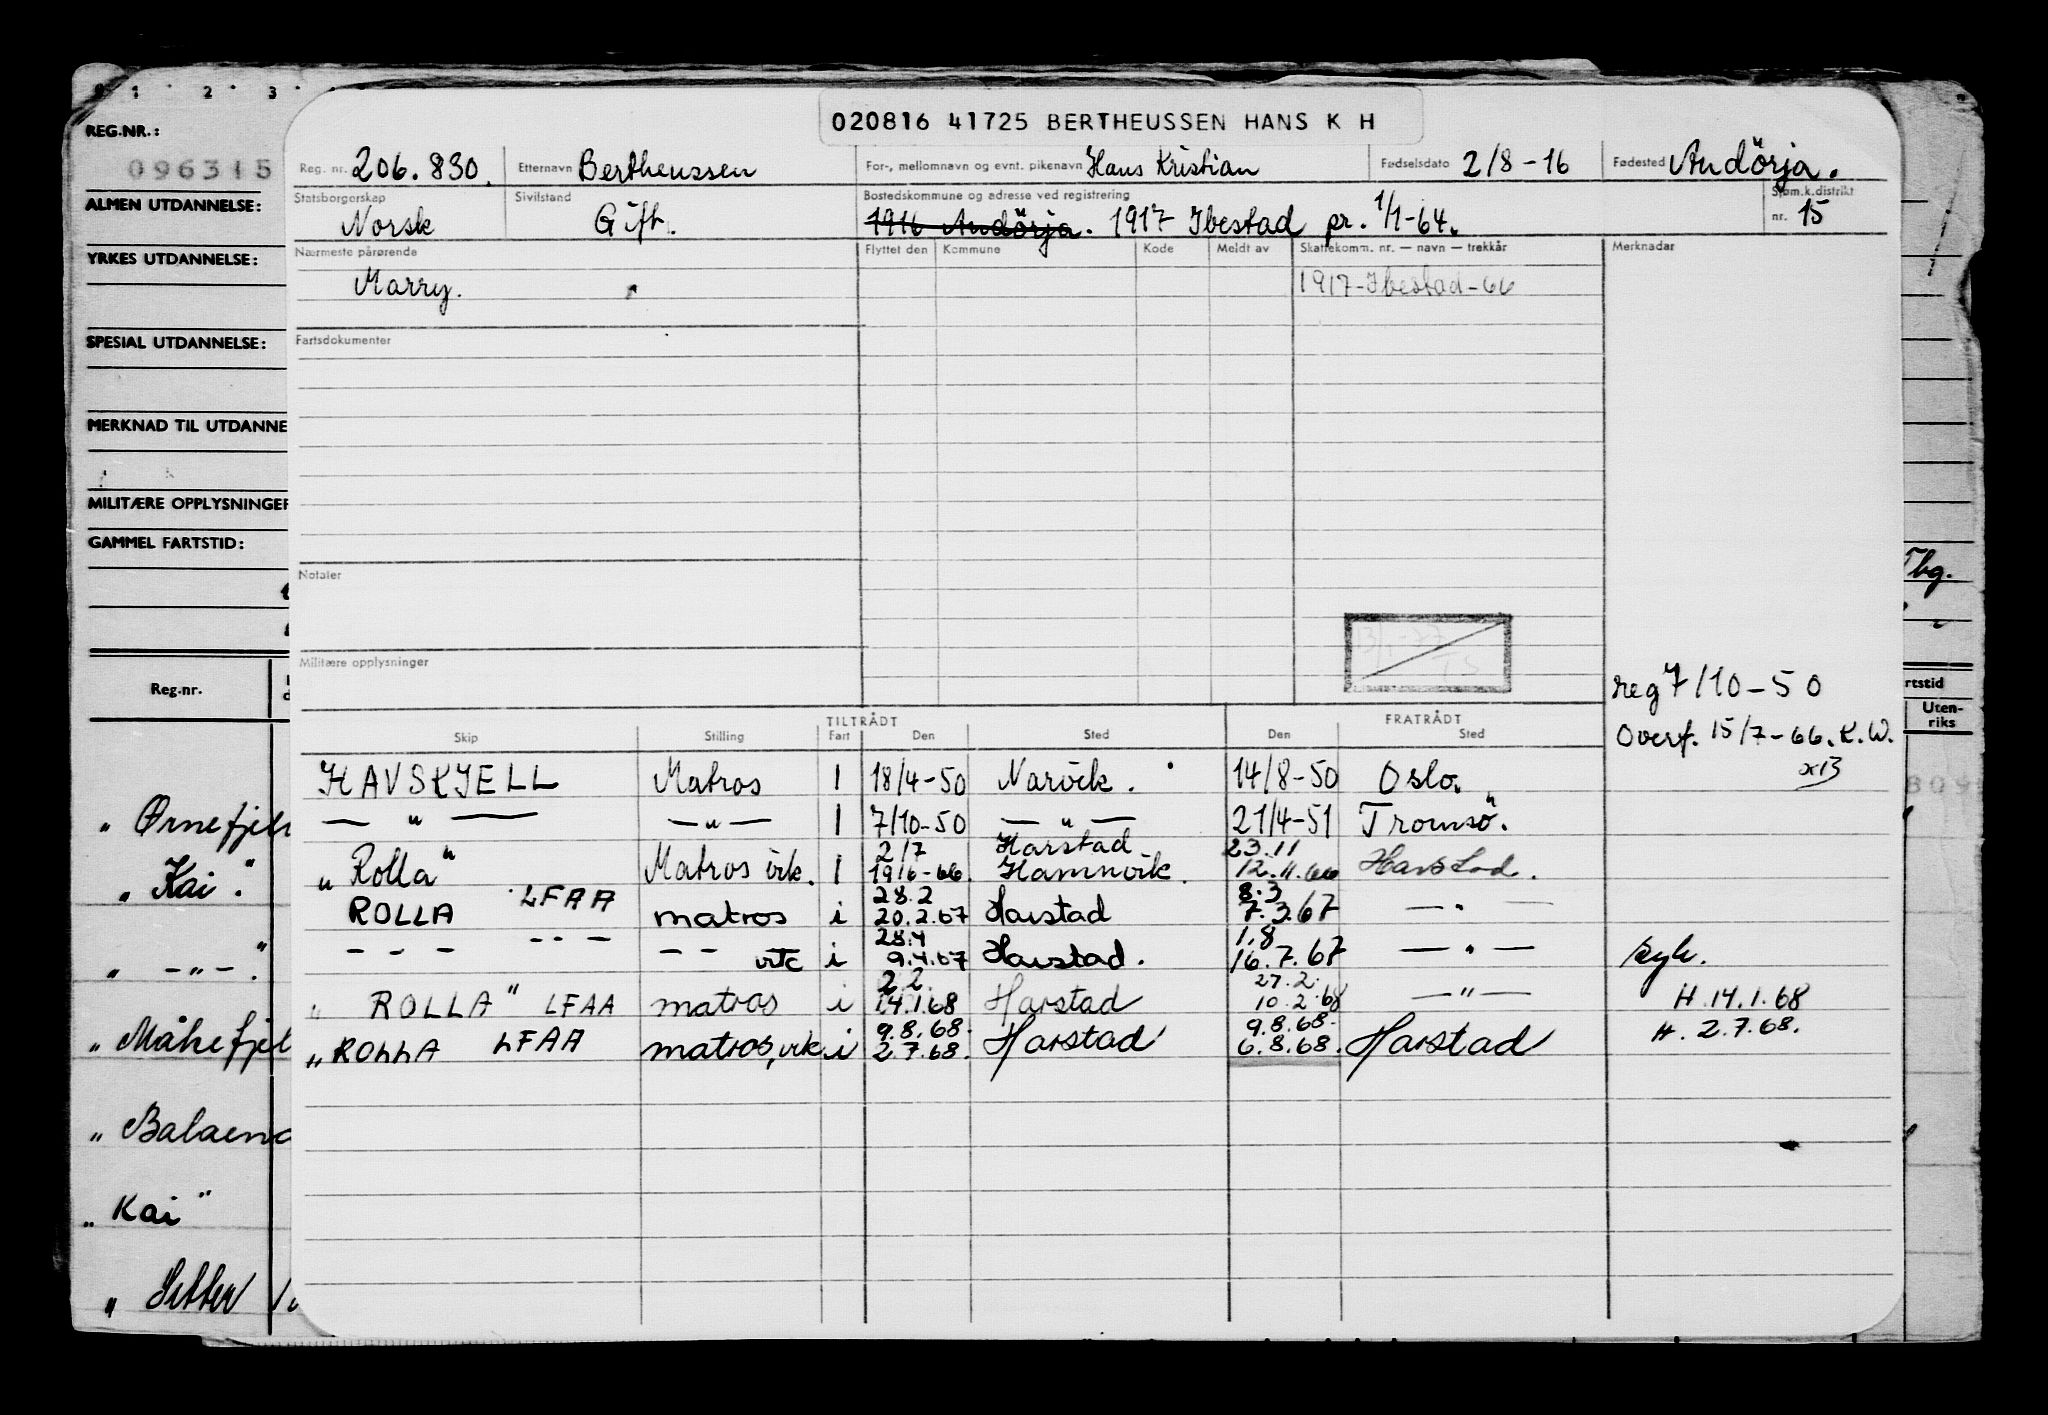 020816 41725 BERTHEUSSEN HANS K H
1 2 3
REG.NR.:
096315
ALMEN UTDANNELSE:
YRKES UTDANNELSE:
SPESIAL UTDANNELSE:
MERKNAD TIL UTDANNE
MILITÆRE OPPLYSNINGER
GAMMEL FARTSTID:
Reg.nr.
„ Ørnefjel
„ Kai".
„ —„—".
„ Måkefjel
„ Balaena
„ Kai"
„ Sitter
Reg. nr. 206.830. Etternavn Bertheussen For-, mellomnavn og evnt. pikenavn Hans Kristian Fødselsdato 2/8-16 Fødested Andörja.
Statsborgerskap Norsk Sivilstand Gift. Bostedskommune og adresse ved registrering 1916 Andörja. 1917 Ibestad pr. 1/1-64. Sjøm.k.distrikt nr. 15
Nærmeste pårørende Flyttet den Kommune Kode Meldt av Skattekomm. nr. — navn — trekkår Merknader
Marry. 1917-Ibestad-66
Fartsdokumenter
Notater
Militære opplysninger
reg 7/10-50
Overf. 15/7-66. K.W.
TILTRÅDT FRATRÅDT
Skip Stilling Fart Den Sted Den Sted
HAVSKJELL Matros I 18/4-50 Narvik. 14/8-50 Oslo.
— „ — —„— I 7/10-50 —„— 21/4-51 Tromsö.
2/7 Harstad 23.11
„Rolla" Matros virk. I 19/6-66. Hamnvik. 12.11.66 Harstad.
28.2 8.3
ROLLA LFAA matros i 20.2.67 Harstad 7.3.67 — „ —
28.4 1.8
- - - - - - - - vik i 9.4.67 Harstad. 16.7.67 — „ — syk.
2.2. 27.2.
„ ROLLA" LFAA matros i 14.1.68 Harstad 10.2.68 —„— H 14.1.68
9.8.68. 9.8.68.
„ROLLA LFAA matros, vik. i 2.7.68. Harstad 6.8.68. Harstad H. 2.7.68.
Tbg.
rtstid
Uten-
riks